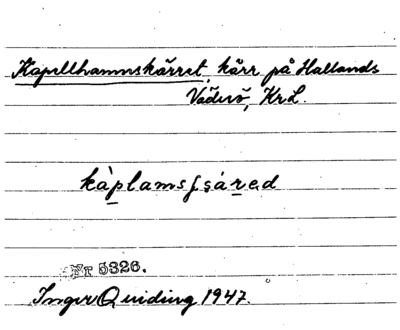 Kapellhamnskärret, kärr på Hallands
Väderö, Kr L.
kàplamsʃşáred
Nr 5326.
Inger Quiding 1947